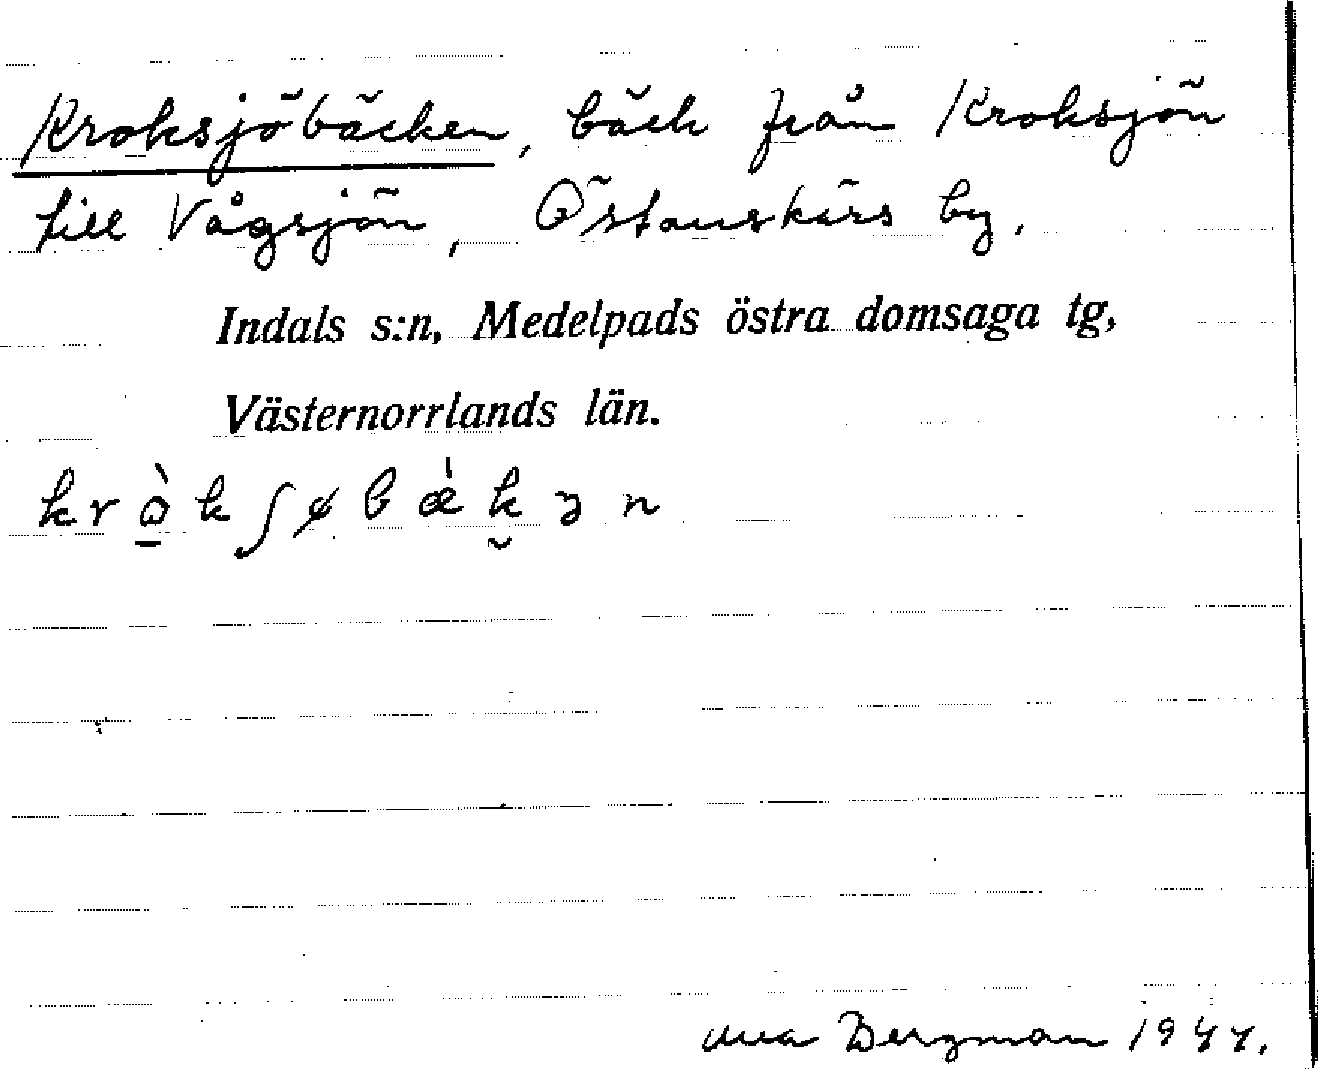 Kroksjöbäcken, bäck från Kroksjön
till Vågsjön, Östanskärs by.
Indals s:n, Medelpads östra domsaga tg,
Västernorrlands län.
kròkʃøbǽkən
Bergman 1944.